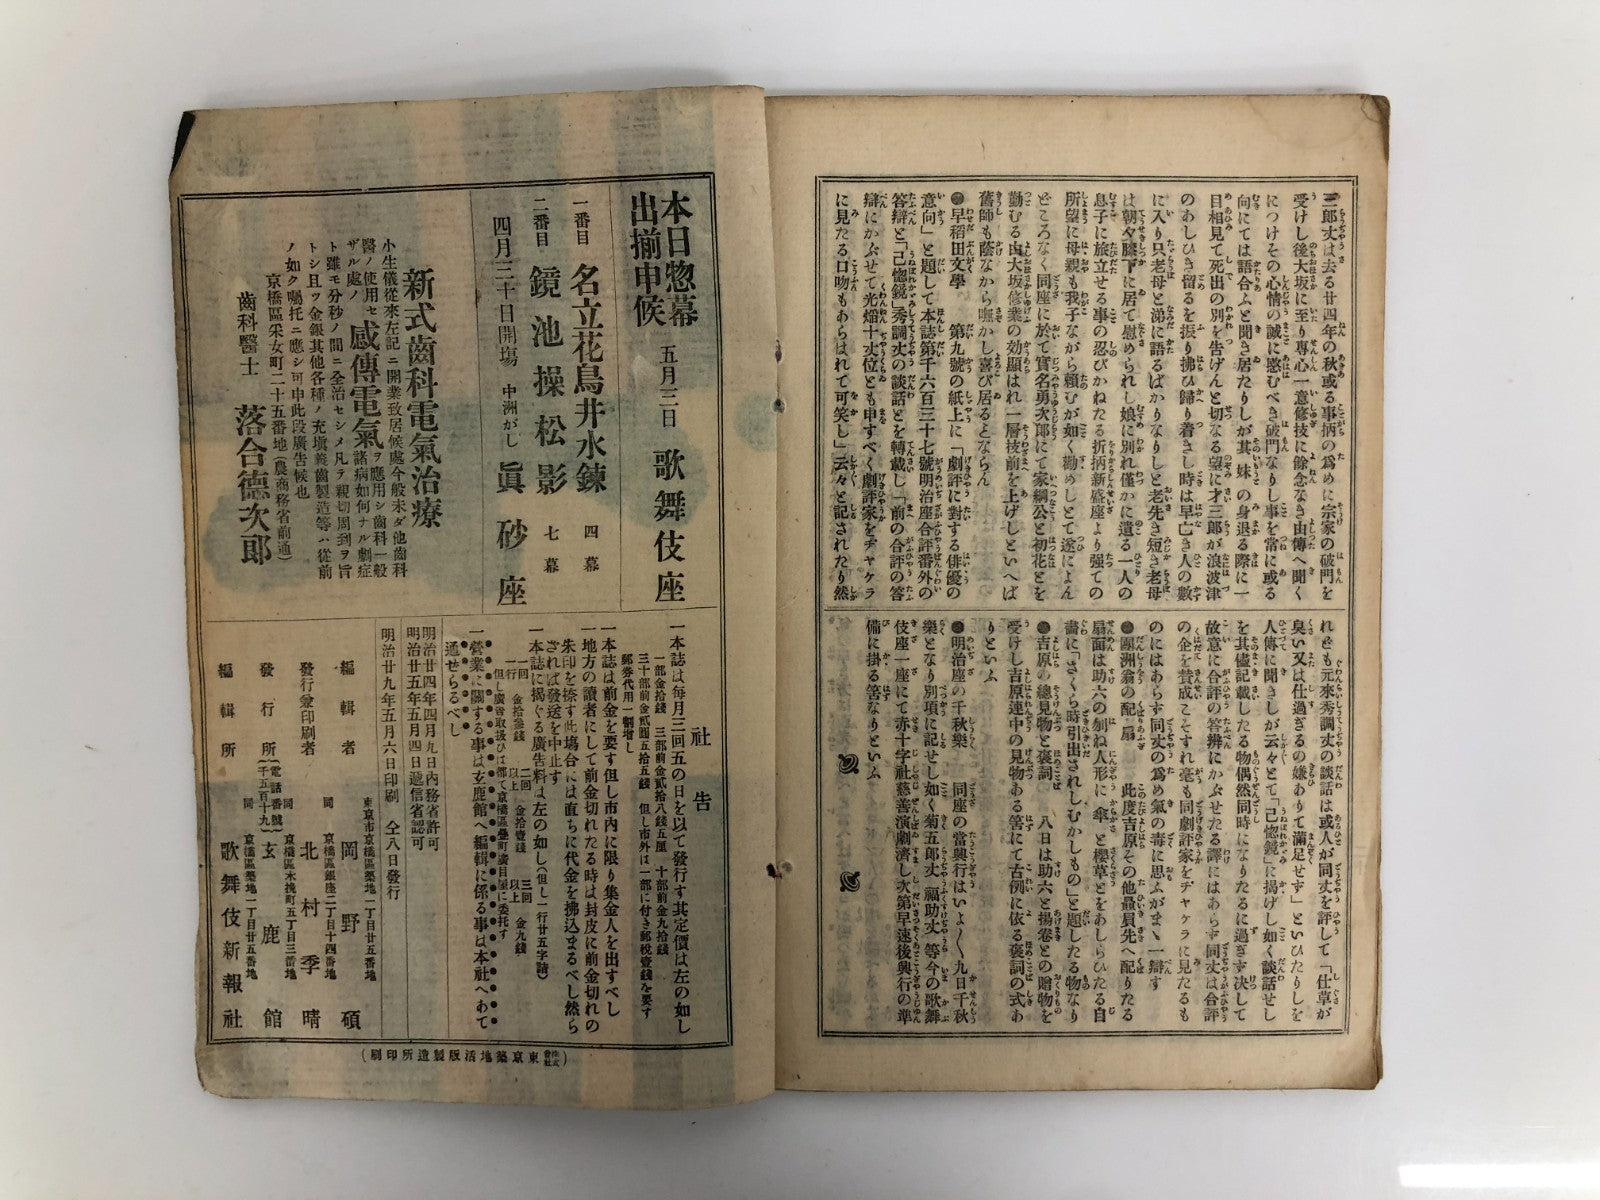 三郎丈は去る廿四年の秋或る事柄の爲めに宗家の破門を
受けし後大坂に至り專心一意修技に餘念なき由傳へ聞く
につけその心情の誠に愍むべき破門なりし事を常に或る
向にては語合ふと聞き居たりしが其妹の身退る際に一
目相見て死出の別を告げんと切なる望に才三郎が浪波津
のあしひき留るを振り拂ひ歸り着きし時は早亡き人の數
に入り只老母と弟に語るばかりなりしと老先き短き老母
は朝夕膝下に居て慰められし娘に別れ僅かに遺る一人の
息子に旅立せる事の忍びかねたる折柄新盛座より強ての
所望に母親も我子ながら頼むが如く勸めしとて遂によん
どころなく同座に於て實名勇次郎にて家綱公と初花とを
勤むる由大坂修業の効顯はれ一層技前を上げしといへば
舊師も蔭ながら嘸かし喜び居るとならん
●早稻田文學 第九號の紙上に「劇評に對する俳優の
意向」と題して本誌第千六百三十七號明治座合評番外の
答辯と「己惚鏡」秀調丈の談話とを轉載し「前の合評の答
辯にかぶせて光熖十丈位とも申すべく劇評家をヂャケラ
に見たる口吻もあらはれて可笑し」云々と記されたり然
れども元來秀調丈の談話は或人が同丈を評して「仕草が
臭い又は仕過ぎるの嫌ありて滿足せず」といひたりしを
人傳に聞きしが云々とて「己惚鏡」に揭げし如く談話せし
を其儘記載したる物偶然同時になりたるに過ぎず決して
故意に合評の答辨にかぶせたる譯にはあらず同丈は合評
の企を賛成こそすれ毫も同劇評家をヂャケラに見たるも
のにはあらず同丈の爲め氣の毒に思ふがまゝ一辯す
●團洲翁の配り扇 此度吉原その他贔屓先へ配りたる
扇面は助六の刎ね人形に傘と櫻草とをあしらひたる自
畵に「さくら時引出されしむかしもの」と題したる物なり
●吉原の總見物と褒詞 八日は助六と揚卷との贈物を
受けし吉原連中の見物ある筈にて古例に依る褒詞の式あ
りといふ
●明治座の千秋樂 同座の當興行はいよ〱九日千秋
樂となり別項に記せし如く菊五郎丈福助丈等今の歌舞
伎座一座にて赤十字社慈善演劇濟し次第早速後興行の準
備に掛る筈なりといふ
本日惣幕
出揃申候
五月三日 歌舞伎座
一番目 名立花鳥井水鍊 四幕
二番目 鏡池操松影 七幕
四月三十日開塲 中洲がし 眞砂座
新式齒科電氣治療
小生儀從來左記ニ開業致居候處今般未ダ他齒科
醫ノ使用セ
ザル處ノ
感傳電氣ヲ應用シ齒科一般
諸病如何ナル劇症
ト雖モ分秒ノ間ニ全治セシメ凡ヲ親切周到ヲ旨
トシ且ツ金銀其他各種ノ充塡義齒製造等ハ從前
ノ如ク囑托ニ應シ可申此段廣告候也
京橋區采女町二十五番地(農商務省前通)
齒科醫士 落合德次郎
社告
一本誌は毎月三回五の日を以て發行す其定價は左の如し
一部金拾錢 三部前金貳拾八錢五厘 十部前金九拾錢
三十部前金貳圓五拾五錢 但し市外は一部に付き郵税壹錢を要す
郵券代用一割增し
一本誌は前金を要す但し市內に限り集金人を出すべし
一地方の讀者にして前金切れたる時は封皮に前金切れの
朱印を捺す此塲合には直ちに代金を拂込まるべし然ら
ざれば發送を中止す
一本誌に揭ぐる廣告料は左の如し(但し一行廿五字詰)
一回
一行 金拾參錢 二回
以上 金拾壹錢 三回
以上 金九錢
但し廣告取扱ひは都て京橋區疊町廣目屋に委托す
一營業に關する事は玄鹿館へ編輯に係る事は本社へあて
通せらるべし
明治廿四年四月九日內務省許可
明治廿五年五月四日遞信省認可
明治廿九年五月六日印刷 仝八日發行
東京市京橋區築地一丁目廿五番地
編輯者 岡野碩
同 京橋區銀座二丁目十四番地
發行兼印刷者 北村季晴
同 京橋區木挽町五丁目三番地
發行所 (電話番號千五百十九) 玄鹿館
同 京橋區築地一丁目廿五番地
編輯所 歌舞伎新報社
(株式會社東京築地活版製造所印刷)